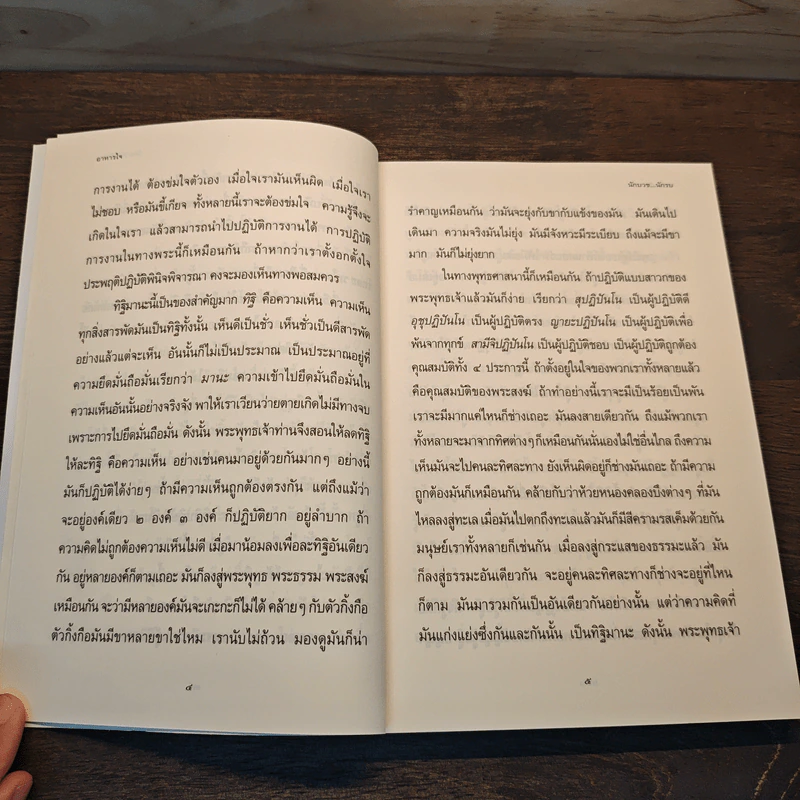 อาหารใจ
การงานได้ ต้องข่มใจตัวเอง เมื่อใจเรามันเห็นผิด เมื่อใจเรา
ไม่ชอบ หรือมันขี้เกียจ ทั้งหลายนี้เราจะต้องข่มใจ ความรู้จึงจะ
เกิดในใจเรา แล้วสามารถนำไปปฏิบัติการงานได้ การปฏิบัติ
การงานในทางพระนี้ก็เหมือนกัน ถ้าหากว่าเราตั้งอกตั้งใจ
ประพฤติปฏิบัติพินิจพิจารณา คงจะมองเห็นทางพอสมควร
ทิฐิมานะนี้เป็นของสำคัญมาก ทิฐิ คือความเห็น ความเห็น
ทุกสิ่งสารพัดมันเป็นทิฐิทั้งนั้น เห็นดีเป็นชั่ว เห็นชั่วเป็นดีสารพัด
อย่างแล้วแต่จะเห็น อันนั้นก็ไม่เป็นประมาณ เป็นประมาณอยู่ที่
ความยึดมั่นถือมั่นเรียกว่า มานะ ความเข้าไปยึดมั่นถือมั่นใน
ความเห็นอันนั้นอย่างจริงจัง พาให้เราเวียนว่ายตายเกิดไม่มีทางจบ
เพราะการไปยึดมั่นถือมั่น ดังนั้น พระพุทธเจ้าท่านจึงสอนให้ลดทิฐิ
ให้ละทิฐิ คือความเห็น อย่างเช่นคนมาอยู่ด้วยกันมากๆ อย่างนี้
มันก็ปฏิบัติได้ง่ายๆ ถ้ามีความเห็นถูกต้องตรงกัน แต่ถึงแม้ว่า
จะอยู่องค์เดียว ๒ องค์ ๓ องค์ ก็ปฏิบัติยาก อยู่ลำบาก ถ้า
ความคิดไม่ถูกต้องความเห็นไม่ดี เมื่อมาน้อมลงเพื่อละทิฐิอันเดียว
กัน อยู่หลายองค์ก็ตามเถอะ มันก็ลงสู่พระพุทธ พระธรรม พระสงฆ์
เหมือนกัน จะว่ามีหลายองค์มันจะเกะกะก็ไม่ได้ คล้ายๆ กับตัวกิ้งกือ
ตัวกิ้งกือมันมีขาหลายขาใช่ไหม เรานับไม่ถ้วน มองดูมันก็น่า
๔
นักบวช...นักรบ
รำคาญเหมือนกัน ว่ามันจะยุ่งกับขากับแข้งของมัน มันเดินไป
เดินมา ความจริงมันไม่ยุ่ง มันมีจังหวะมีระเบียบ ถึงแม้จะมีขา
มาก มันก็ไม่ยุ่งยาก
ในทางพุทธศาสนานี้ก็เหมือนกัน ถ้าปฏิบัติแบบสาวกของ
พระพุทธเจ้าแล้วมันก็ง่าย เรียกว่า สุปฏิปันโน เป็นผู้ปฏิบัติดี
อุชุปฏิปันโน เป็นผู้ปฏิบัติตรง ญายะปฏิปันโน เป็นผู้ปฏิบัติเพื่อ
พ้นจากทุกข์ สามีจิปฏิปันโน เป็นผู้ปฏิบัติชอบ เป็นผู้ปฏิบัติถูกต้อง
คุณสมบัติทั้ง ๔ ประการนี้ ถ้าตั้งอยู่ในใจของพวกเราทั้งหลายแล้ว
คือคุณสมบัติของพระสงฆ์ ถ้าทำอย่างนี้เราจะมีเป็นร้อยเป็นพัน
เราจะมีมากแค่ไหนก็ช่างเถอะ มันลงสายเดียวกัน ถึงแม้พวกเรา
ทั้งหลายจะมาจากทิศต่างๆ ก็เหมือนกันนั่นเองไม่ใช่อื่นไกล ถึงความ
เห็นมันจะไปคนละทิศละทาง ยังเห็นผิดอยู่ก็ช่างมันเถอะ ถ้ามีความ
ถูกต้องมันก็เหมือนกัน คล้ายกับว่าห้วยหนองคลองบึงต่างๆ ที่มัน
ไหลลงสู่ทะเล เมื่อมันไปตกถึงทะเลแล้วมันก็มีสีครามรสเค็มด้วยกัน
มนุษย์เราทั้งหลายก็เช่นกัน เมื่อลงสู่กระแสของธรรมะแล้ว มัน
ก็ลงสู่ธรรมะอันเดียวกัน จะอยู่คนละทิศละทางก็ช่างจะอยู่ที่ไหน
ก็ตาม มันมารวมกันเป็นอันเดียวกันอย่างนั้น แต่ว่าความคิดที่
มันแก่งแย่งซึ่งกันและกันนั้น เป็นทิฐิมานะ ดังนั้น พระพุทธเจ้า
๕